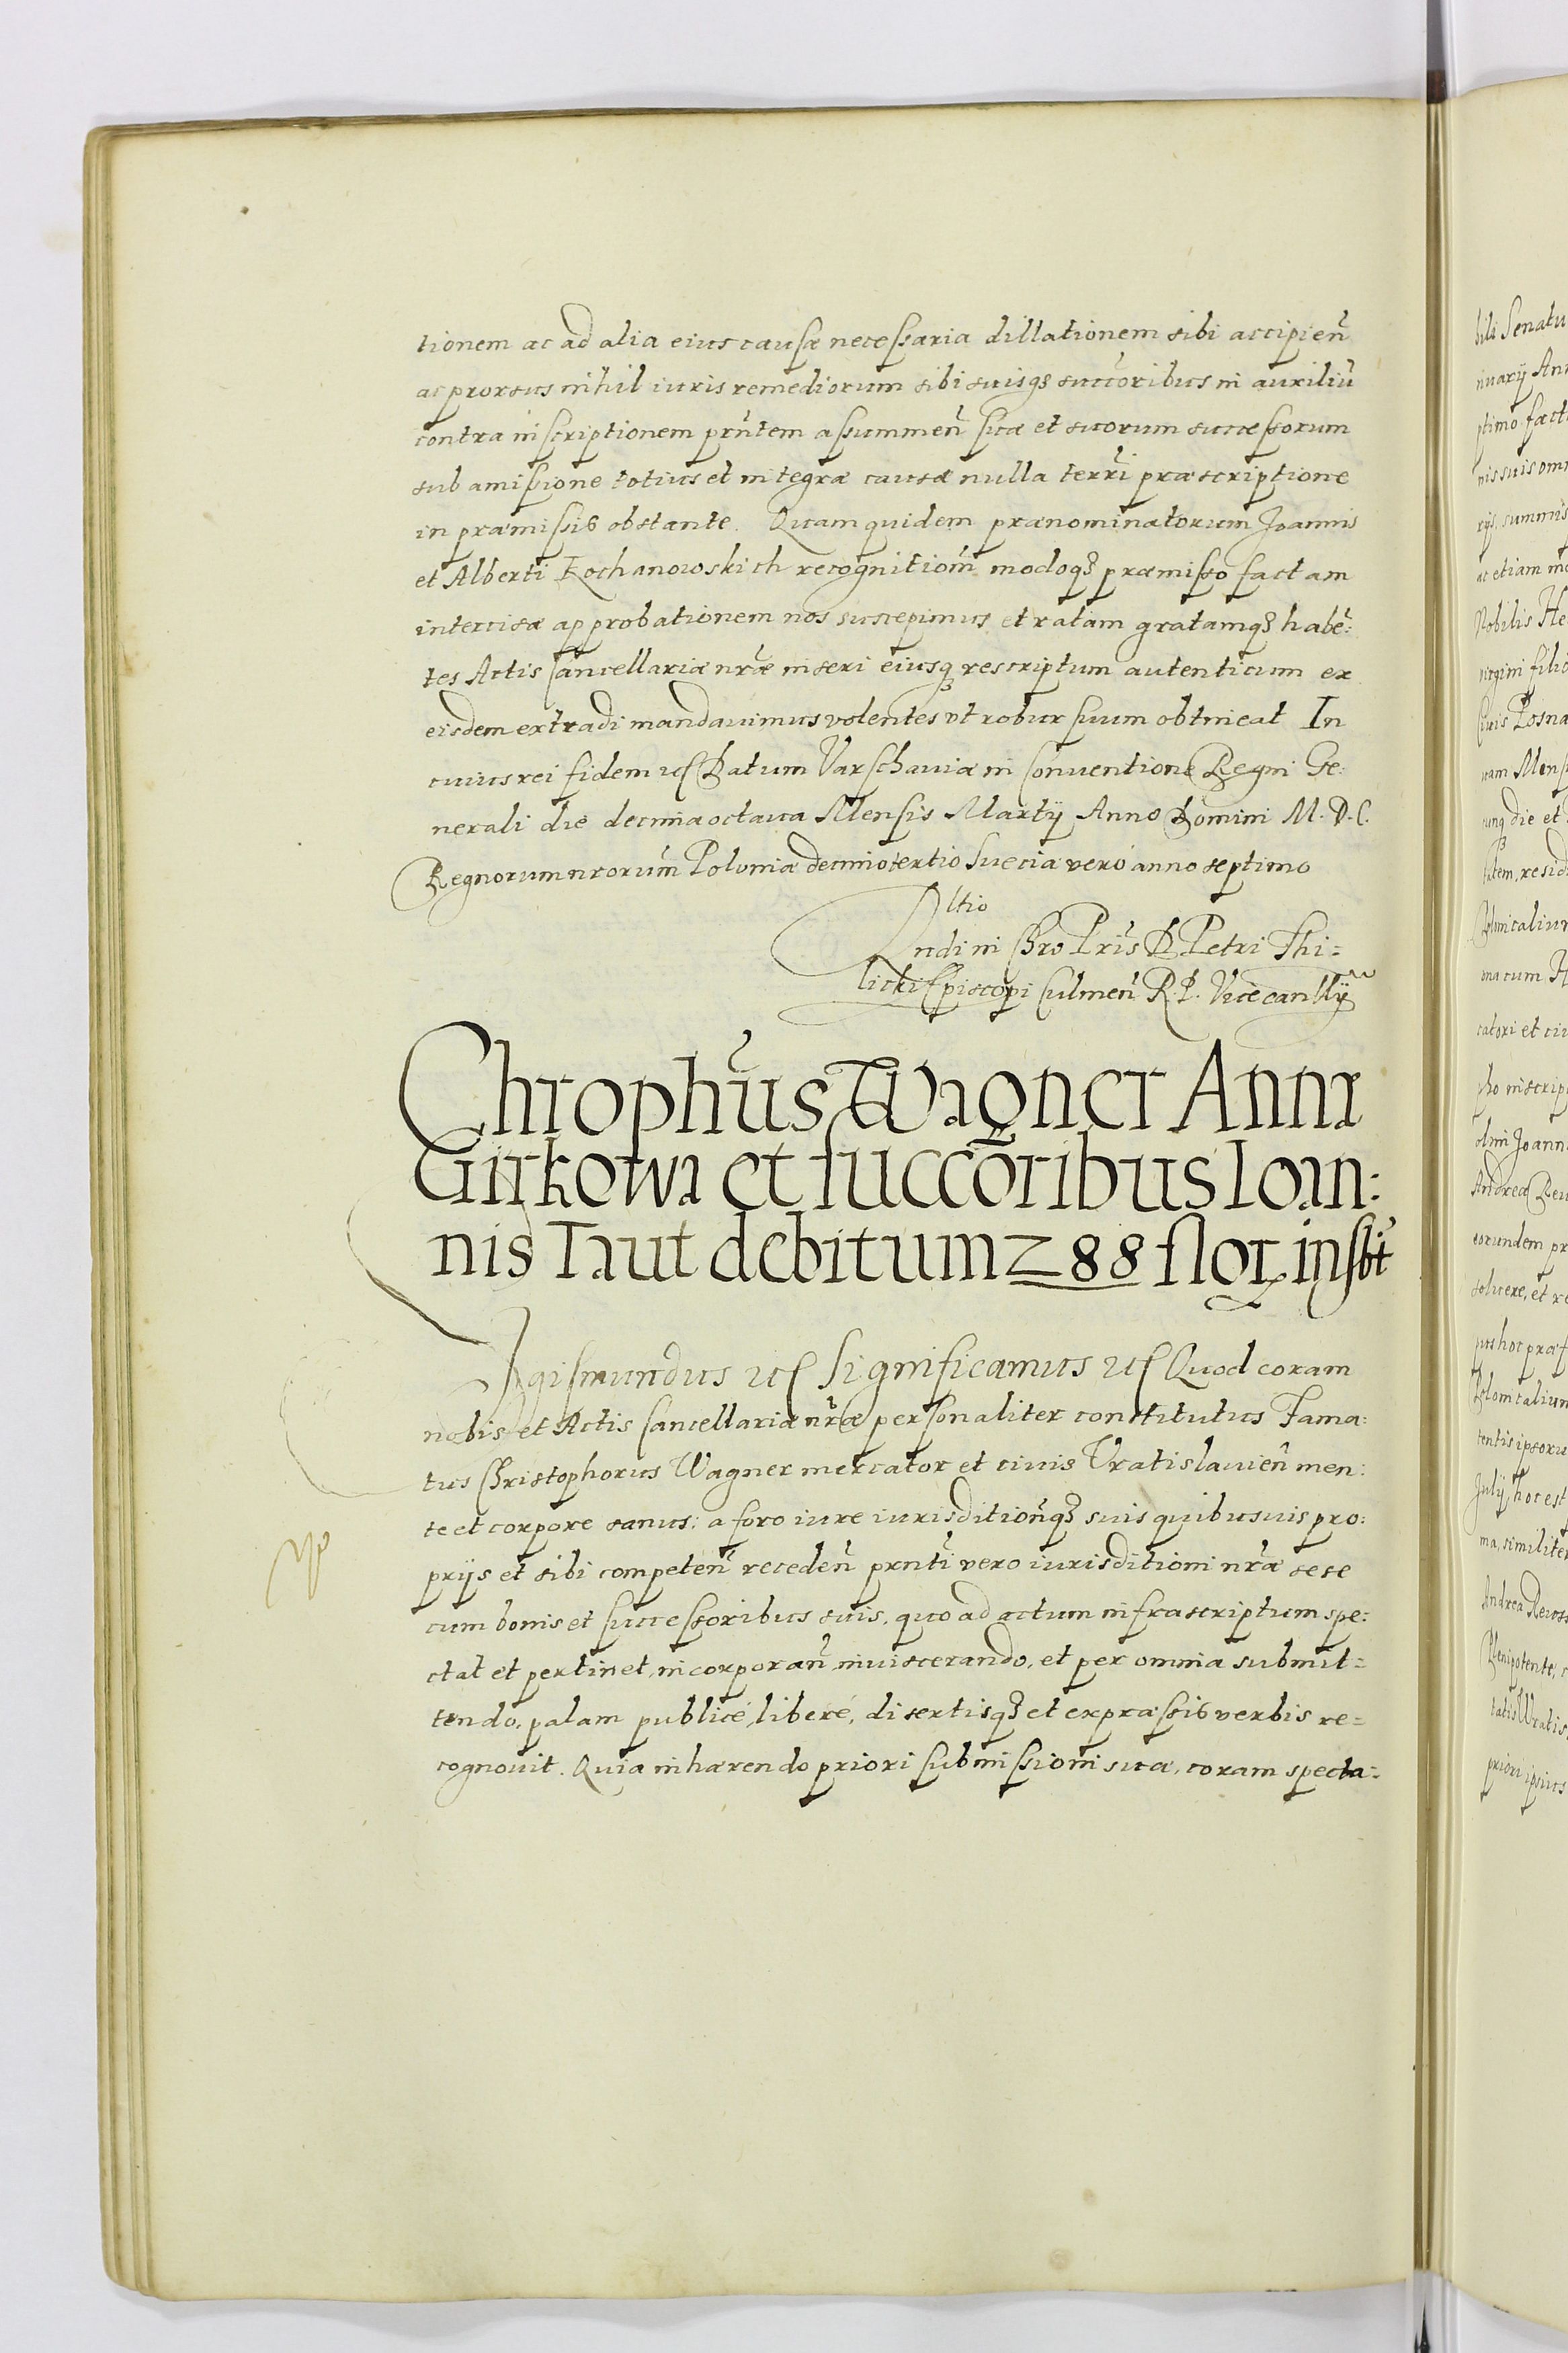 tionem ac ad alia eius causæ necessaria dillationem sibi accipieñ
ac prorsus nihil iuris remediorum sibi suisq3 succ̃oribus in auxiliũ
contra inscriptionem prñtem assummeñ suæ et suorum successorum
sub amissione totius et integræ causæ nulla terr̃i præscriptione
in præmissis obstante. Quam quidem prænominatorum Joannis
et Alberti Kochanowskich recognitiom̃ modoq3 præmisso factam
intercisæ approbationem nos suscepimus et ratam gratamq3 habẽ:
tes Actis Cancellariæ nr̃æ inseri eiusq3 rescriptum autenticum ex
eisdem extradi mandauimus volentes vt robur suum obtineat In
cuius rei fidem etc Datum Varschauiæ in Conventione Regni Ge:
nerali die decima octaua Mensis Martij Anno Domini M.D.C.
Regnorum nrorum̃ Poloniæ decimotertio Sueciæ veró anno septimo
Rltio
Rndi in Chro Pris̃ D Petri Thi=
licki Episcopi Culmeñ R.P. Vicecanllij
Chrophũs Wagner Annæ
Girkowa et succõribus Ioan:
nis Taut debitum 288 flor insbt̃
Sigismundus etc Significamus etc Quod coram
nobis et Actis Cancellariæ nr̃æ personaliter constitutus Fama:
tus Christophorus Wagner mercator et ciuis Vratislauieñ men:
te et corpore sanus: a foro iure iurisditioñq3 suis quibusuis pro:
prijs et sibi competeñ recedeñ prntĩ vero iurisditioni nr̃æ sese
cum bonis et successoribus suis, quo ad actum infrascriptum spe:
ctat et pertinet, incorporañ, inuiscerando, et per omnia submit=
tendo, palam publicé, liberé, disertisq3 et expræssis verbis re=
cognouit. Quia inhærendo priori submissioni suæ, coram specta=
bili Senatu
nuarij Ann
ptimo fact
nis suis omn
rijs, summis
ac etiam mo
Nobilis He
virgini filiæ
Ciuis Posna
tatem, resid
catori et ciu
pho inscrip
olim Joann
Andrea Reu
eorundem pr
soluere, et re
tentis ipsoru
Julij, hoc est
ma, similiter
Andrea Reuss
Plenipotente,
tatis Wratis
priori ipsius